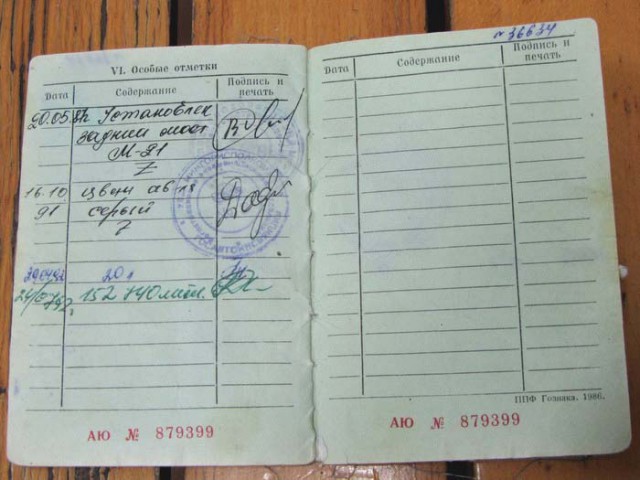 VI. Особые отметки
Дата Содержание Подпись и печать
Установлен
задний мост
М-21
16.10 цвет а в ля
91 серый
20 л
152 740
АЮ № 879399
№ 36634
Дата Содержание Подпись и печать
ППФ Гознака. 1986.
АЮ № 879399